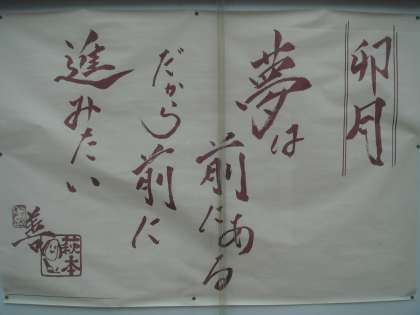 卯月
夢は
前にある
だから
前に
進みたい
善
萩本